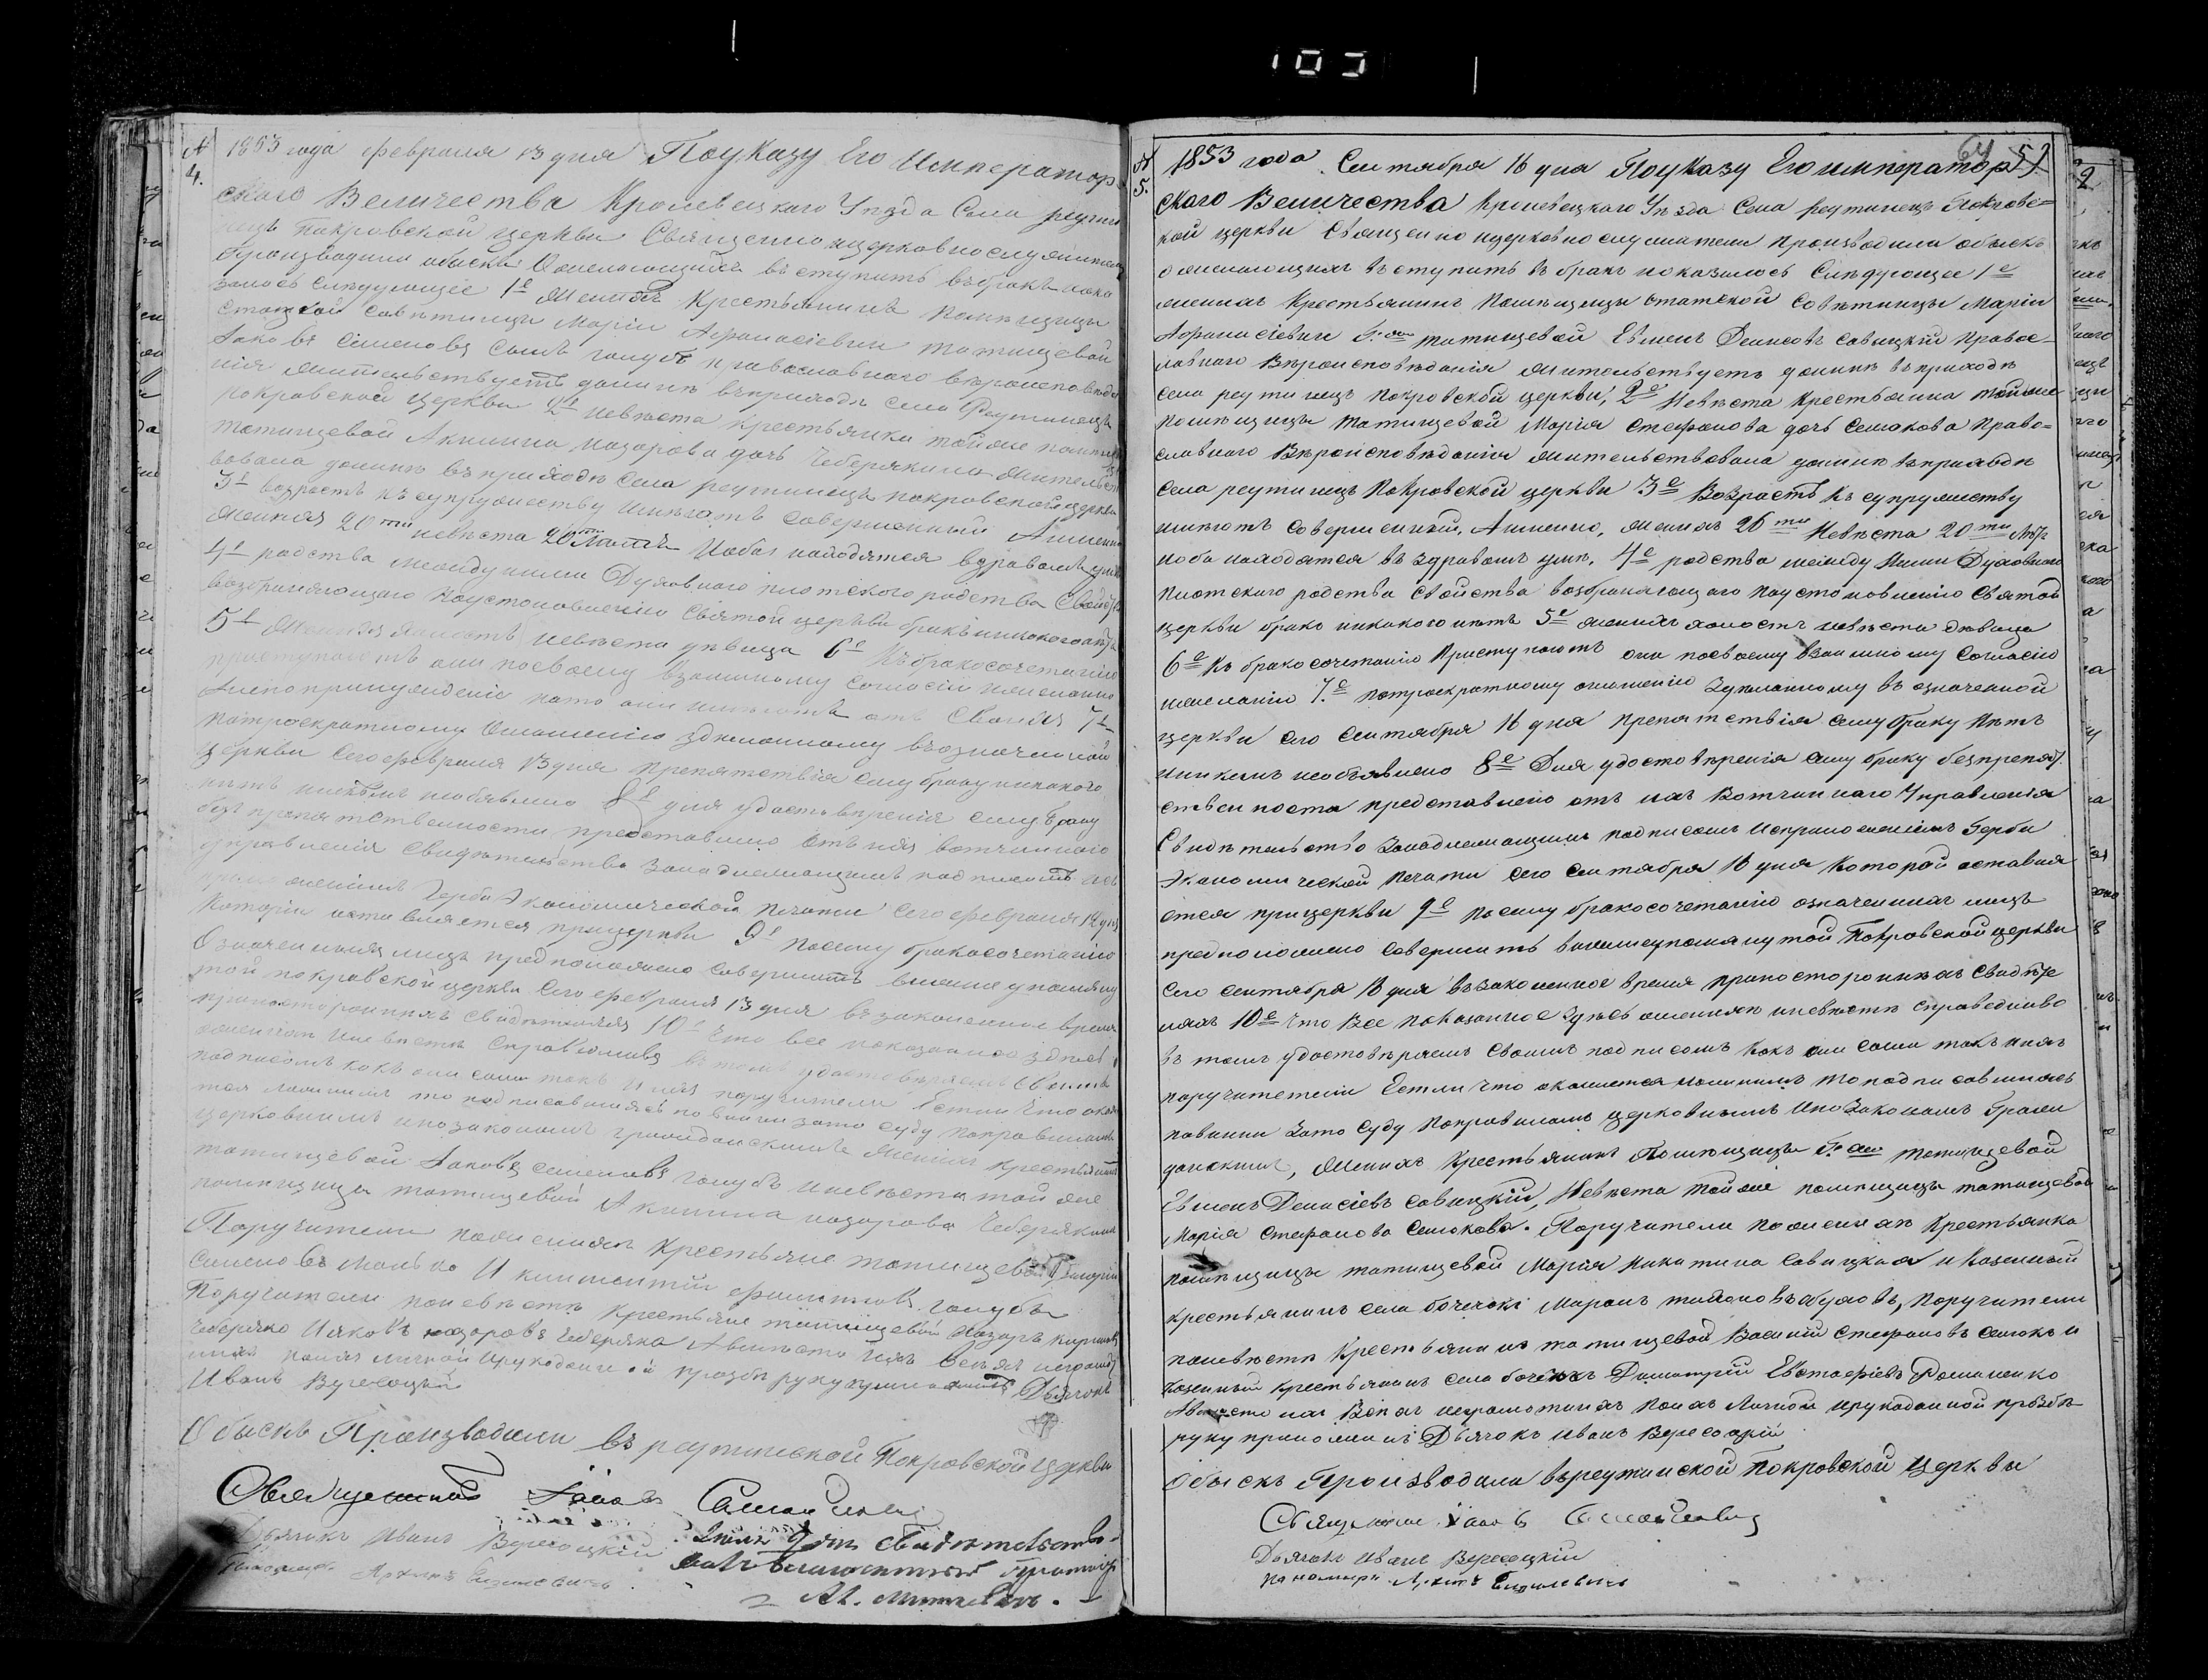 103
№ 4.
1853 года февраля 13 дня Поуказу Его Император
ского Величества Кролевецкаго Уѣзда Села реутин
ецъ Покровской церкви Священноицерковнослужители
Производили обыскъ Ожелающихъ вступить вбракъ иока
залось слѣдующее 1е Женихъ Крестьянинъ Помѣщицы
Статской Совѣтницы Маріи Афанасіевни татищевой
Іаковъ Сіменовъ сынъ голубъ православнаго вѣроисповѣда
нія жительствуетъ донинѣ въприходѣ села Реутинецъ
покровской церкви 2е невѣста крестьянка тойже помѣщ
татищевой Акилина назарова дочь Чеберякина жительст
вовала донинѣ въприходѣ села реутинецъ покровской церкви
3е возрастъ къ супружеству имѣютъ совершенный Аименно
женихъ 20ти невѣста 20ти лѣтъ Иоба находятся вздравомъ умѣ
4е родства между ними Духовнаго плотскаго родства Свойства
возбраняющаго поустановленію святой церкви бракъ никакогонѣтъ
5е Женихъ холостъ невѣста дѣвица 6е Къбракосочетанію
приступаютъ они посвоему взаимному согласію ижеланію
Анепопринужденію нато они имѣютъ отъ своихъ 7е
потроекратному Оглашенію здѣланному възначенной
церкви сегофевраля 13 дня препятствія сему браку никакого
нѣтъ никѣмъ необявлено 8е для удостовѣренія сему браку
безпрепятственности представлено отъ ихъ вотчиннаго
управленія свидѣтельство Занадлежащимъ подписомъ ис
приложеніемъ герба Экономической печати сего февраля 12 дня
Которіи оставляется прицеркви 9е посему бракосочетанію
Означенныхъ лицъ предположено совершить вышеупомяну
той покровской церкви сего февраля 13 дня въ законенное время
припостороннихъ свидѣтеляхъ 10е что все показанное здѣсь
оженихи иневѣсти справедливо въ томъ удостовѣряемъ своимъ
подписомъ какъ они сами такъ и ихъ поручители Естли что окаж
тся ложнимъ то подписавшіесь повинни зато суду поправиламъ
церковнимъ ипозаконамъ гражданскимъ Женихъ Крестьянинъ
татищевой Іаковъ семеновъ голубъ иневѣста той же
помѣщицы татищевой Акилина назарова Чеберякина
Поручители поженихѣ Крестьяне татищевой Григорій
семеновъ И климентій филиповъ голубъ
Поручители поневѣстѣ Крестьяне татищевой Назаръ кирилов
чеберяко Ияковъ назаровъ чеберяка Авместо ихъ всѣхъ неграмот
нихъ поихъ личной ирукоданной прозбѣ руку приложилъ Дьячокъ
Иванъ Вересоцкій
Обыскъ Производили въ реутинской Покровской Церкви
Священникъ Іаковъ Самойловичъ
Дьячокъ Иванъ Вересоцкій
Пономарь Архипъ
№ 5.
64
1853 года Сентября 16 дня Поуказу Егоимператор
скаго Величества Кролевецкаго Уѣзда Села реутинецъ Покровс=
кой церкви Священно ицерковнослужители производили обыскъ
ожелающихъ вступить въ бракъ иоказалось Слѣдующее 1е
женихъ Крестьянинъ Помѣщицы статской Совѣтницы Маріи
Афанасіевни татищевой Евменъ Денисовъ савицкій православ-
лавнаго Вѣроисповѣданія жительствуетъ донинѣ въприходѣ
села реутинецъ Покровской церкви, 2е Невѣста Крестьянка тойже
помѣщицы татищевой Марія Стефанова дочь Семакова право=
славнаго Вѣроисповѣданія жительствовала донинѣ въприходѣ
села реутинецъ Покровской церкви 3е Возрастъ къ супружеству
имѣютъ совершенний, Аименно, женихъ 26ти Невѣста 20ти лѣтъ
иоба находятся въ здравомъ умѣ. 4е родства между Ними Духовнаго
плотскаго родства Свойства возбраняющаго поустановленію Святой
церкви бракъ никакого нѣтъ 5е женихъ холостъ невѣста дѣвица
6е Къ бракосочетанію Приступаютъ они посвоему взаимному согласію
ижеланію 7е потроекратному оглашенію Здѣланному въ означенной
церкви сего сентября 16 дня препятствія сему браку нѣтъ
иникимъ необъявлено 8е Для удостовѣренія сему браку безпрепят
ственности представлено отъ ихъ Вотчиннаго Управленія
Свидѣтельство Занадлежащимъ подписомъ исприложеніемъ Герба
Экономической Печати сего Сентября 16 дня которой оставля
ется прицеркви 9е посему бракосочетанію означенныхъ лицъ
предположено совершить ввишеупомянутой Покровской церкви
сего сентября 16 дня въ законенное время припостороннихъ Свидѣте
ляхъ 10е Что Все показанное здѣсь оженихѣ иневѣстѣ справедливо
въ томъ удостовѣряемъ Своимъ подписомъ какъ они сами такъ иихъ
поручители Естли что окажется ложнимъ то подписавшіесь
повинни зато суду поправиламъ церковнимъ ипозаконамъ Граж
данскимъ, Женихъ Крестьянинъ Помѣщицы татищевой
Евменъ Денисіевъ савицкій, Невѣста тойже помѣщицы татищевой
Марія стефанова Семокова. Поручители поженихѣ Крестьянка
помѣщицы татищевой Марія никитина савицкая и Казенный
крестьянинъ села бочечокъ Поручители
поневѣстѣ Крестьянинъ татищевой Василій Стефановъ семокъ и
казенный крестьянинъ села бочечкъ Димитрій Евстафіевъ Романенко
Авместо ихъ Всѣхъ неграмотнихъ поихъ Личной ирукоданной прозбѣ
руку приложилъ Дьячокъ иванъ Вересоцкій
Обыскъ Производили въреутинской Покровской Церкви
Священникъ Іаковъ Самойловичъ
Дьячокъ Иванъ Вересоцкій
Пономарь Архипъ